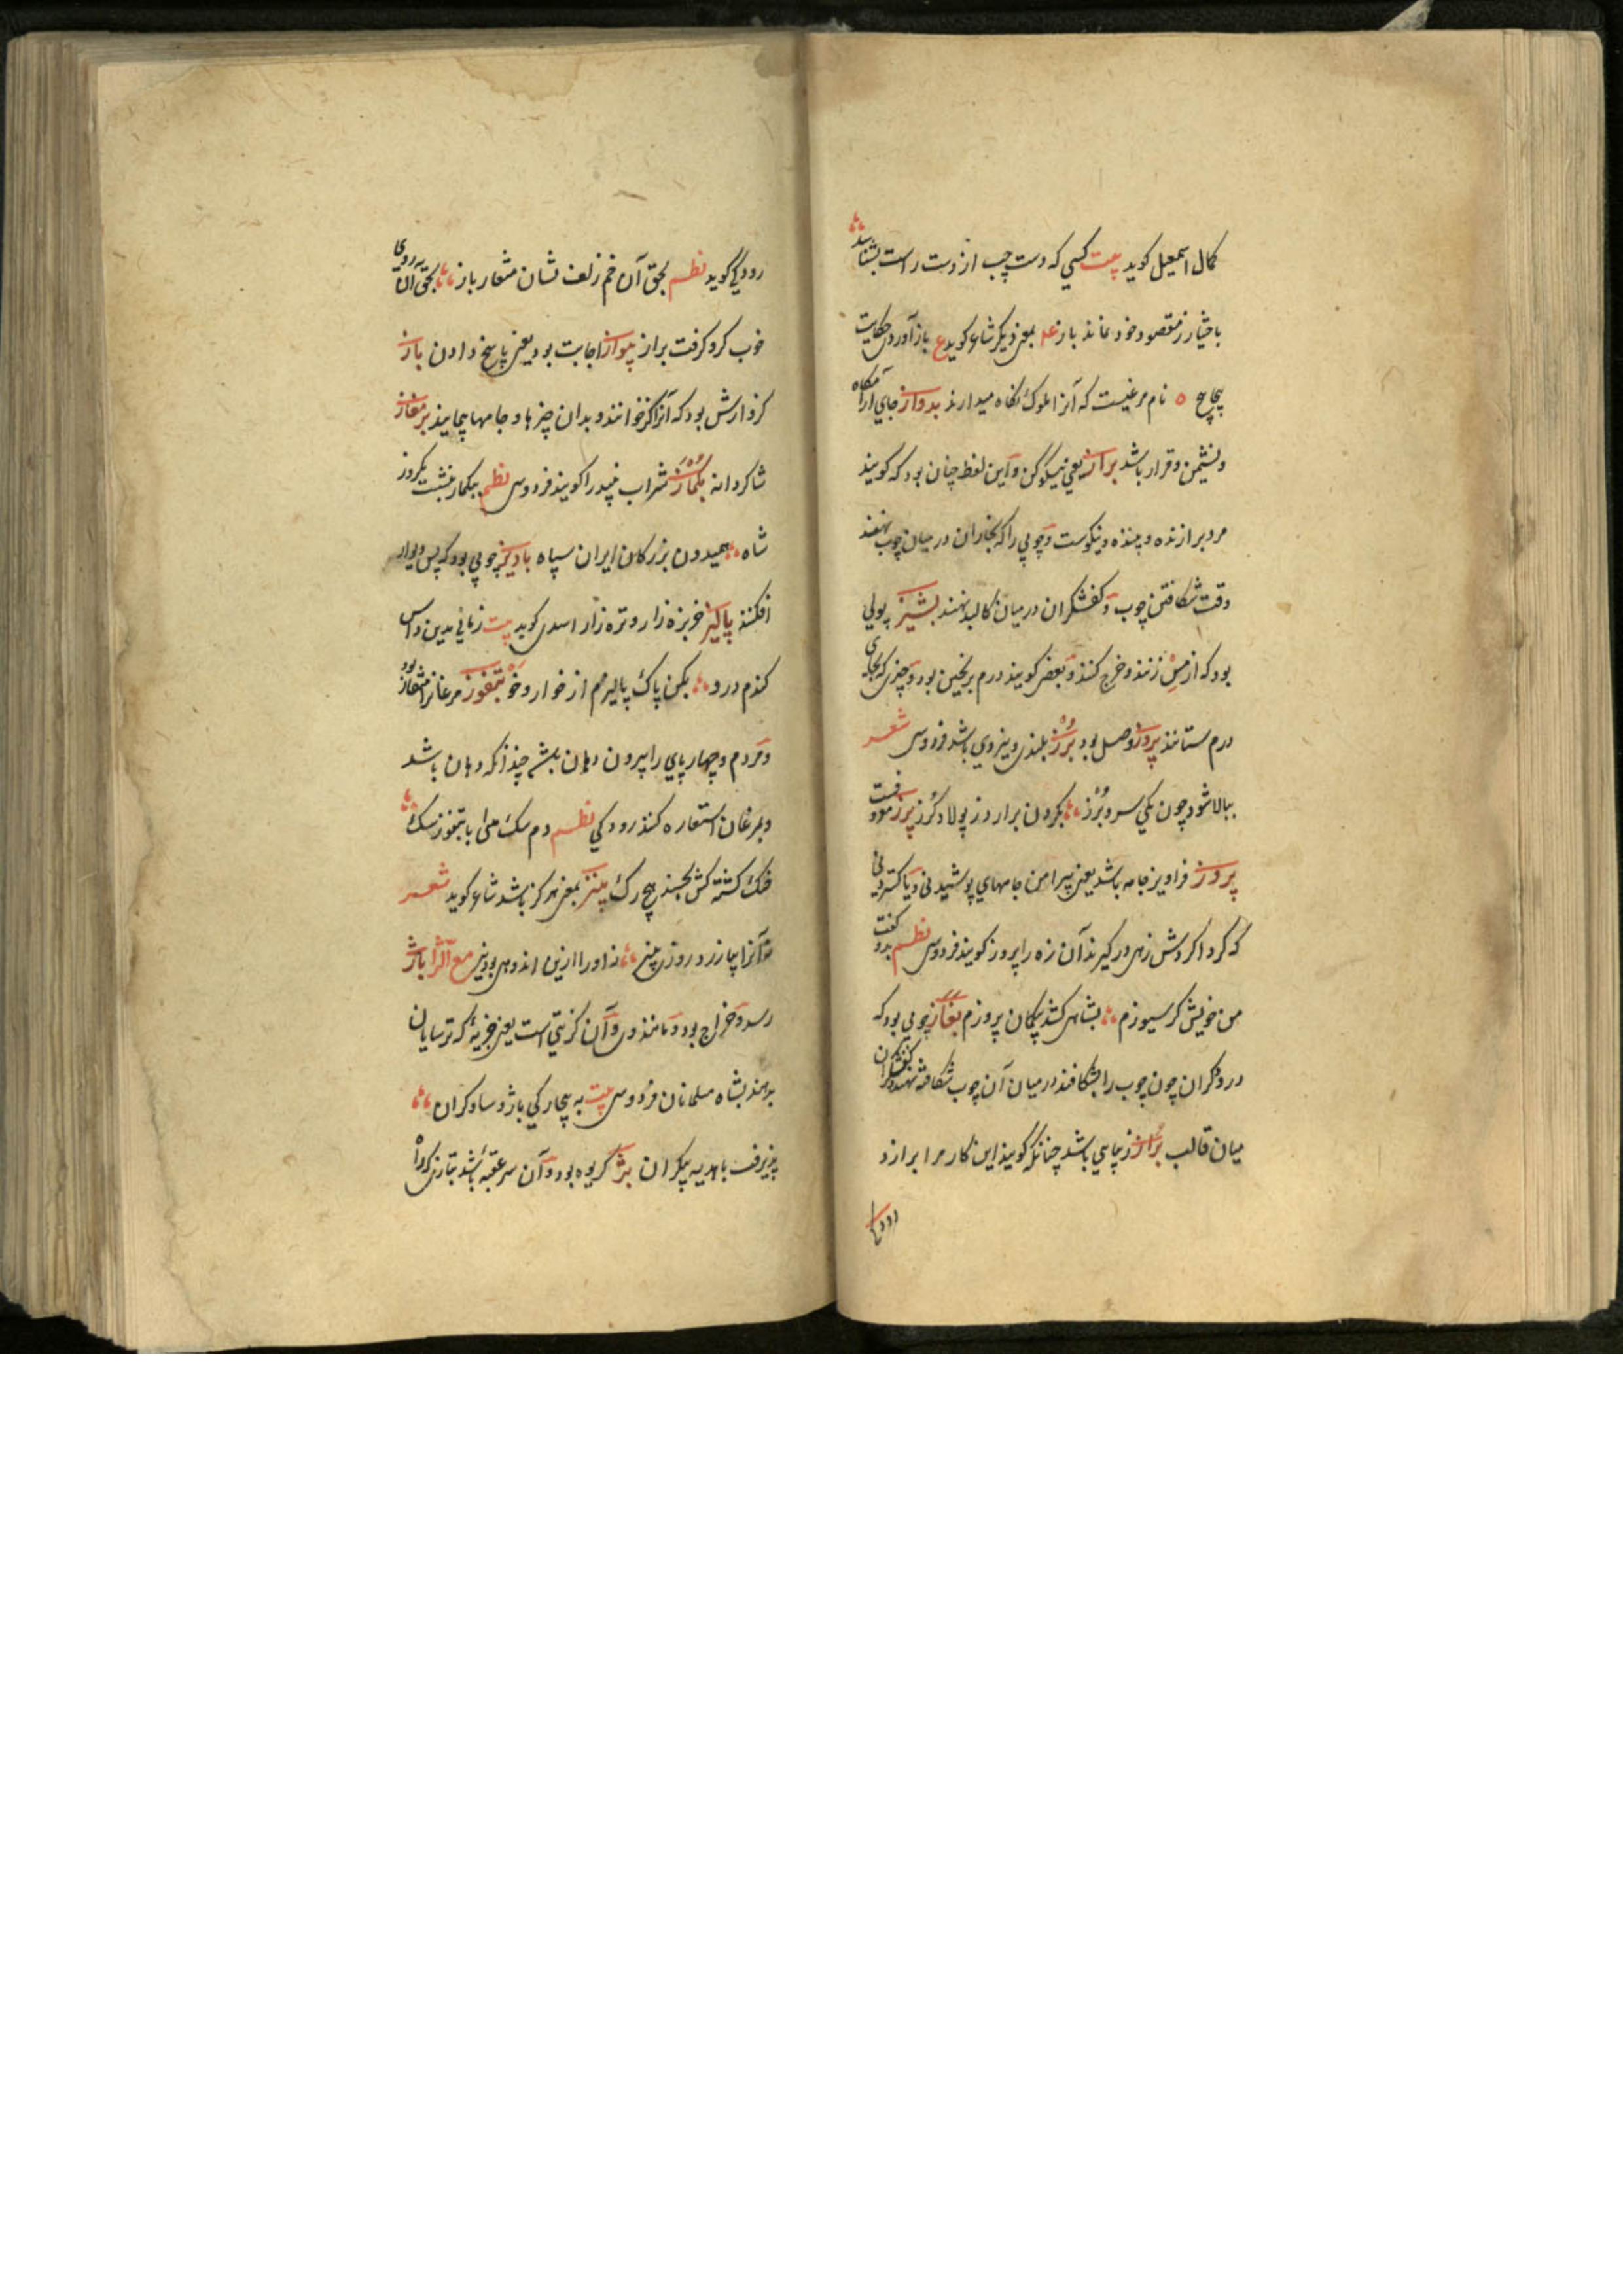 کمال اسمعیل کوید بیت کسی که دست چپ از دست راست بشناسد
باختیار ز مقصود خود نماند باز ع بمعنی دیکر شاعر کوید ع باز آوردی حکایت
نام مرغیست که آنرا ملوک نکاه میدارند بدواز جای آرامگاه
و نشیمن و قرار باشد براز یعنی نیکویی و این لفظ چنان بود که کویند
مرد برازنده و نیکوست و چوبی را که نجاران در میان چوب نهند
وقت شکافتن چوب و کفشکران در میان کالبد نهند بشیز پولی
بود که از مس زنند و خرج کنند و بعضی کویند درم برنجین بود و چیزی که بجای
درم ستانند پروز وصل بود برز بلندی و نیروی باشد فردوسی شعر
ببالا شود چون یکی سرو برز بکردن برارد ز پولاد کرز
پروز فراویز جامه باشد یعنی پیرامن جامهای پوشیدنی و یا کستردنی
که کرد اکردش زهی درکیرند آن زه را پروز کویند فردوسی نظم بدو کفت
من خویش کرسیوزم بشاهی کشد پروزم بغاز چوبی بود که
درودکران چون چوب را بشکافند در میان آن چوب شکافته نهند و کفشکران
میان قالب براز زیبایی باشد چنانکه کویند این کار مرا برازد
رودکی
رودکی کوید نظم بحق آن خم زلف بسان منقار باز بحق آن روی
خوب کزو کرفت براز پیواز اجابت بود یعنی پاسخ دادن باز
کز و ارش بود که آنرا کز خوانند و بدان چیزها و جامها پیمایند برمغاز
شاکردانه بکماز شراب نبید را کویند فردوسی نظم ببکماز بنشست یکروز
شاه همیدون بزرکان ایران سپاه بادیز چوبی بود که پس دیوار
افکنند پالیز خربزه زار و تره زار اسدی کوید بیت زمانی بدین داس
کندم درو بکن پاک پالیزم از خوار و خو بتفوز مرغانرا منقار بود
و مردم و چهارپای را پیرون دهان باشد چندانکه دهان باشد
و بمرغان استعاره کنند رودکی نظم دم سک بینی با بتفوز سک
خشک کشته کش نجنبد هیچ رک پنیز بمعنی هرکز باشد شاعر کوید شعر
نه آنرا بیازرد روزی پنیز نه او را ازین اندهی بود نیز مع الزا باژ
رسد و خراج بود و مانند وی و آن کزیتی است یعنی جزیهٔ که ترسایان
بدهند بشاه مسلمانان فردوسی بیت به بیچارکی باژ و ساو کران
پذیرفت با هدیه بیکران بژ کریوه بود و آن سر عقبه باشد بتازی